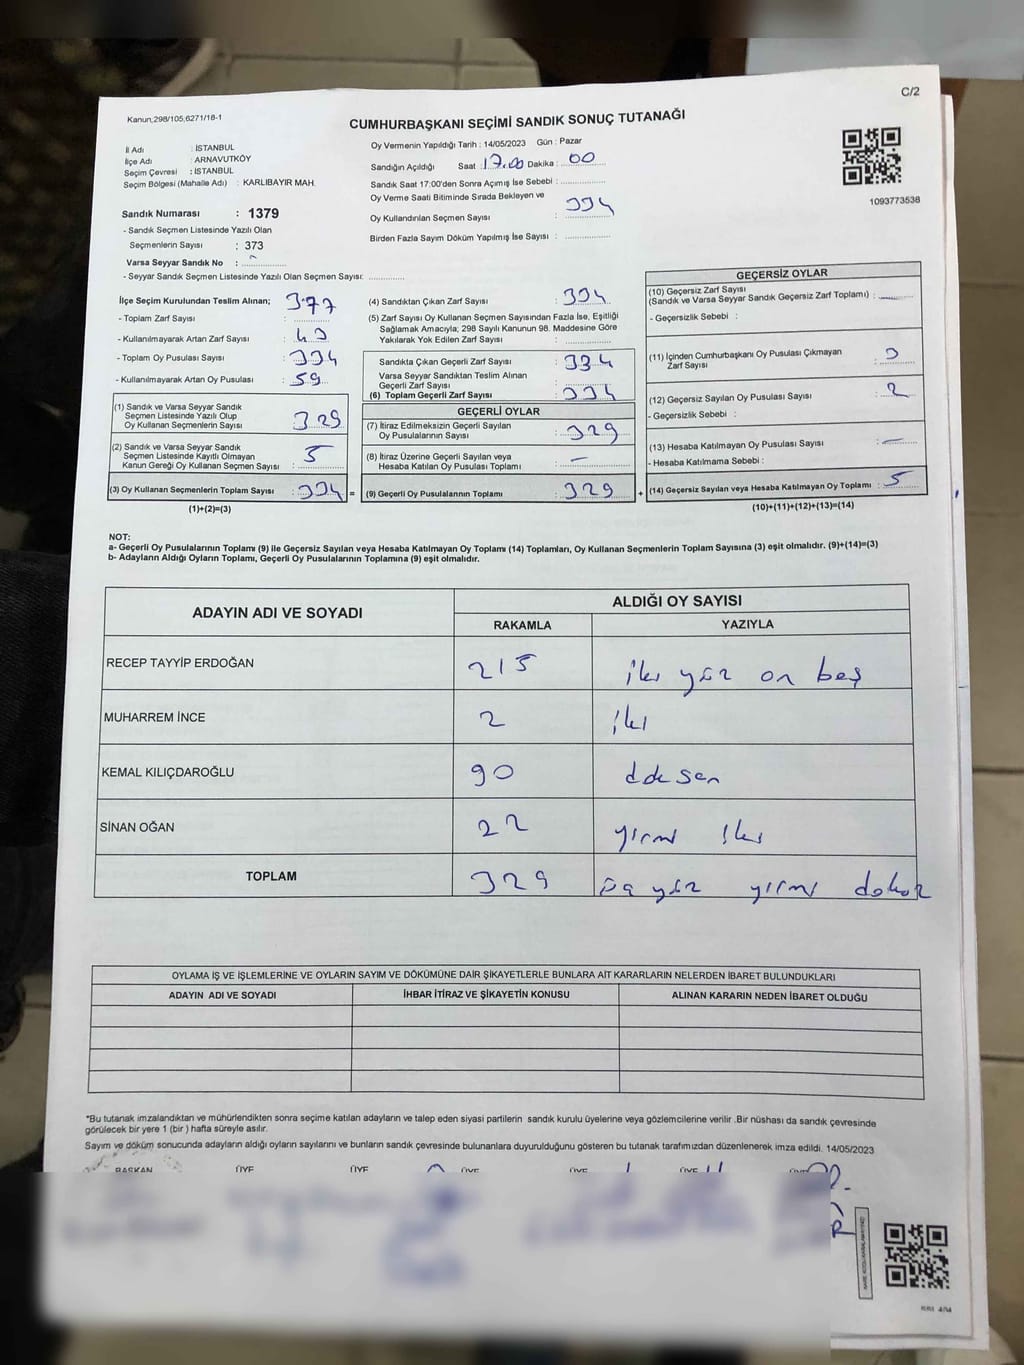 C/2
Kanun,298/105,6271/18-1
CUMHURBAŞKANI SEÇİMİ SANDIK SONUÇ TUTANAĞI
İl Adı : İSTANBUL
İlçe Adı : ARNAVUTKÖY
Seçim Çevresi : İSTANBUL
Seçim Bölgesi (Mahalle Adı) : KARLIBAYIR MAH.
Oy Vermenin Yapıldığı Tarih : 14/05/2023 Gün : Pazar
Sandığın Açıldığı Saat : 17.00 Dakika : 00
Sandık Saat 17:00'den Sonra Açımış İse Sebebi :
Oy Verme Saati Bitiminde Sırada Bekleyen ve
Oy Kullandırılan Seçmen Sayısı : 334
Birden Fazla Sayım Döküm Yapılmış İse Sayısı :
1093773538
Sandık Numarası : 1379
- Sandık Seçmen Listesinde Yazılı Olan
Seçmenlerin Sayısı : 373
Varsa Seyyar Sandık No :
- Seyyar Sandık Seçmen Listesinde Yazılı Olan Seçmen Sayısı:
İlçe Seçim Kurulundan Teslim Alınan;
- Toplam Zarf Sayısı : 377
- Kullanılmayarak Artan Zarf Sayısı : 43
- Toplam Oy Pusulası Sayısı : 334
- Kullanılmayarak Artan Oy Pusulası : 59
(1) Sandık ve Varsa Seyyar Sandık
Seçmen Listesinde Yazılı Olup
Oy Kullanan Seçmenlerin Sayısı : 329
(2) Sandık ve Varsa Seyyar Sandık
Seçmen Listesinde Kayıtlı Olmayan
Kanun Gereği Oy Kullanan Seçmen Sayısı : 5
(3) Oy Kullanan Seçmenlerin Toplam Sayısı : 334 =
(1)+(2)=(3)
(4) Sandıktan Çıkan Zarf Sayısı : 334
(5) Zarf Sayısı Oy Kullanan Seçmen Sayısından Fazla İse, Eşitliği
Sağlamak Amacıyla; 298 Sayılı Kanunun 98. Maddesine Göre
Yakılarak Yok Edilen Zarf Sayısı :
Sandıkta Çıkan Geçerli Zarf Sayısı : 334
Varsa Seyyar Sandıktan Teslim Alınan
Geçerli Zarf Sayısı :
(6) Toplam Geçerli Zarf Sayısı : 334
GEÇERLİ OYLAR
(7) İtiraz Edilmeksizin Geçerli Sayılan
Oy Pusulalarının Sayısı : 329
(8) İtiraz Üzerine Geçerli Sayılan veya
Hesaba Katılan Oy Pusulası Toplamı : —
(9) Geçerli Oy Pusulalarının Toplamı : 329 +
GEÇERSİZ OYLAR
(10) Geçersiz Zarf Sayısı
(Sandık ve Varsa Seyyar Sandık Geçersiz Zarf Toplamı) : —
- Geçersizlik Sebebi :
(11) İçinden Cumhurbaşkanı Oy Pusulası Çıkmayan
Zarf Sayısı : 3
(12) Geçersiz Sayılan Oy Pusulası Sayısı : 2
- Geçersizlik Sebebi :
(13) Hesaba Katılmayan Oy Pusulası Sayısı : —
- Hesaba Katılmama Sebebi :
(14) Geçersiz Sayılan veya Hesaba Katılmayan Oy Toplamı : 5
(10)+(11)+(12)+(13)=(14)
NOT:
a- Geçerli Oy Pusulalarının Toplamı (9) ile Geçersiz Sayılan veya Hesaba Katılmayan Oy Toplamı (14) Toplamları, Oy Kullanan Seçmenlerin Toplam Sayısına (3) eşit olmalıdır. (9)+(14)=(3)
b- Adayların Aldığı Oyların Toplamı, Geçerli Oy Pusulalarının Toplamına (9) eşit olmalıdır.
ADAYIN ADI VE SOYADI ALDIĞI OY SAYISI
RAKAMLA YAZIYLA
RECEP TAYYİP ERDOĞAN 215 iki yüz on beş
MUHARREM İNCE 2 iki
KEMAL KILIÇDAROĞLU 90 doksan
SİNAN OĞAN 22 yirmi iki
TOPLAM 329 üç yüz yirmi dokuz
OYLAMA İŞ VE İŞLEMLERİNE VE OYLARIN SAYIM VE DÖKÜMÜNE DAİR ŞİKAYETLERLE BUNLARA AİT KARARLARIN NELERDEN İBARET BULUNDUKLARI
ADAYIN ADI VE SOYADI İHBAR İTİRAZ VE ŞİKAYETİN KONUSU ALINAN KARARIN NEDEN İBARET OLDUĞU
*Bu tutanak imzalandıktan ve mühürlendikten sonra seçime katılan adayların ve talep eden siyasi partilerin sandık kurulu üyelerine veya gözlemcilerine verilir .Bir nüshası da sandık çevresinde
görülecek bir yere 1 (bir ) hafta süreyle asılır.
Sayım ve döküm sonucunda adayların aldığı oyların sayılarını ve bunların sandık çevresinde bulunanlara duyurulduğunu gösteren bu tutanak tarafımızdan düzenlenerek imza edildi. 14/05/2023
BAŞKAN ÜYE ÜYE ÜYE ÜYE ÜYE ÜYE